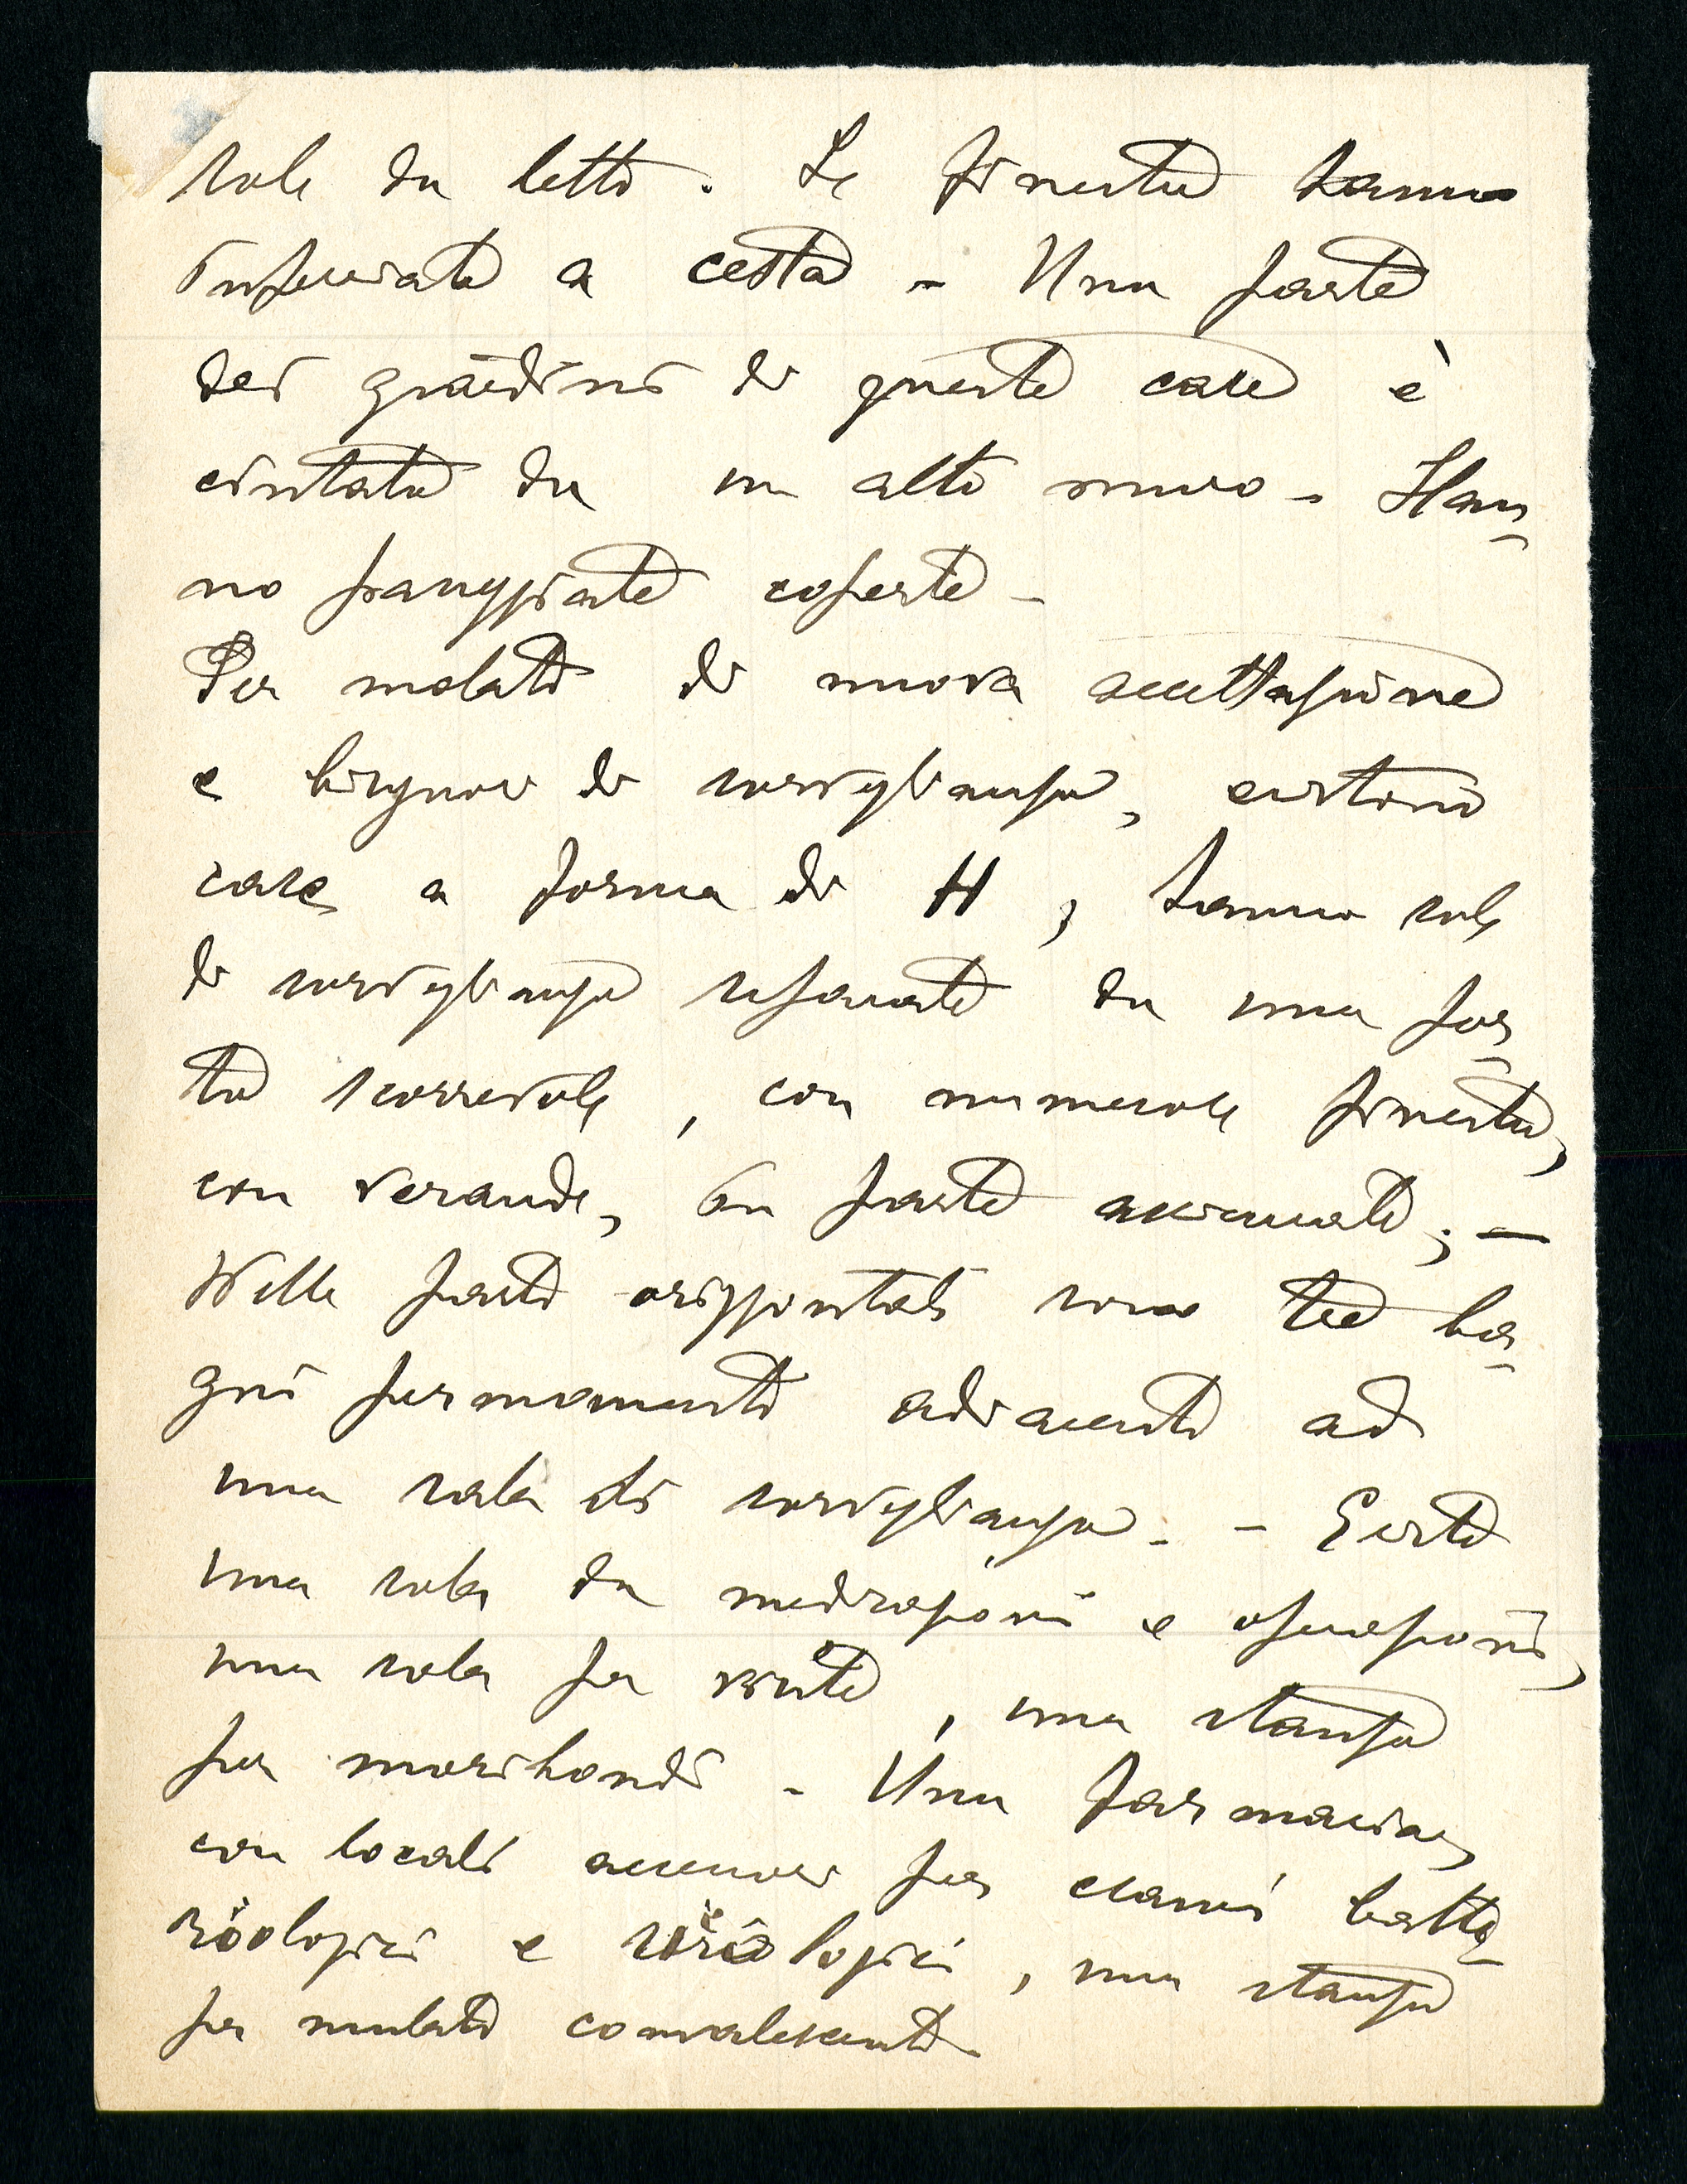 sale da letto. Le finestre hanno
inferriate a cesta - Una parte
dei giardini di queste case è
cintata da un alto muro - Han-
no passeggiate coperte -
Per malati di nuova accettazione
e bisognosi di sorveglianza, esistono
case a forma di H, hanno sale
di sorveglianza separate da una por-
ta scorrevole, con numerose finestre,
con verande, in parte assicurate; -
Nelle parti orizzontali sono tre ba-
gni permanenti adiacenti ad
una sala di sorveglianza. - Esiste
una sala da medicazioni e operazioni,
una sala per visite, una stanza
per moribondi - Una farmacia,
con locali accessori per esami batte-
riologici e sierologici, una stanza
per malati convalescenti -